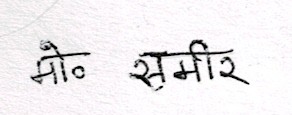 मो० समीर